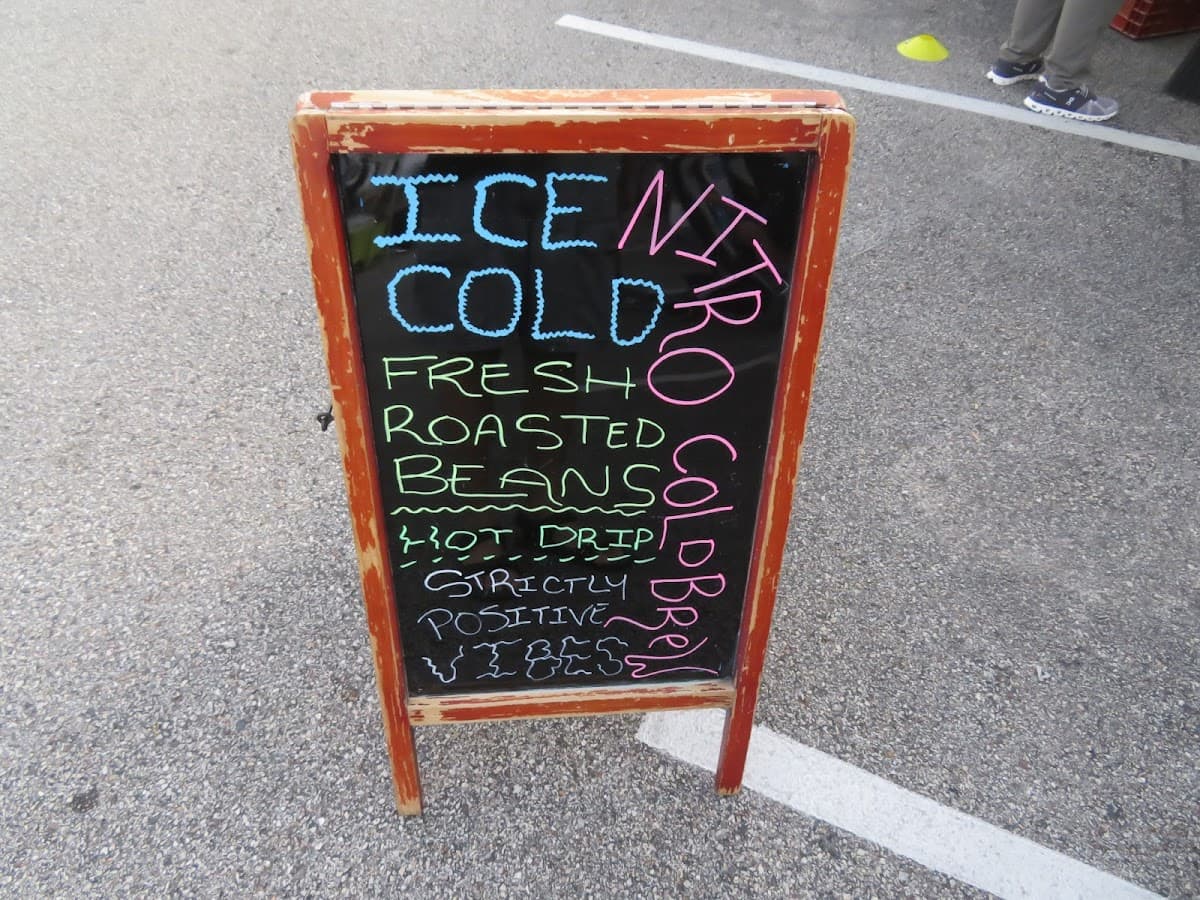 ICE
COLD
FRESH
ROASTED
BEANS
HOT DRIP
STRICTLY
POSITIVE
VIBES
NITRO COLD BREW